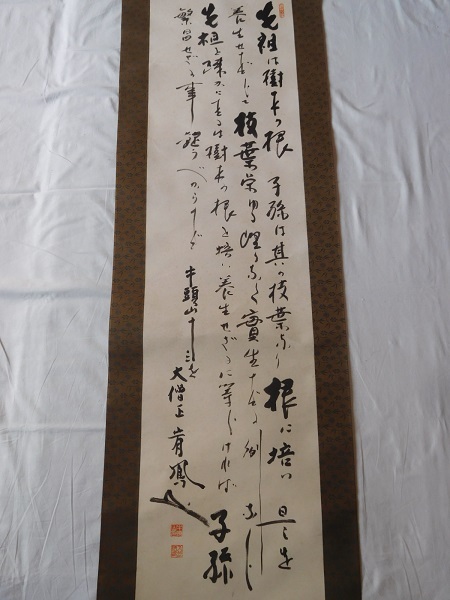 先祖は樹木の根 子孫は其の枝葉なり 根に培い且是を
養生せざれば枝葉栄ゆる理なく實生ずる例なし
先祖を疎かにするは樹木の根を培い養生せざるに等しければ子孫
繁昌せざる事疑うべからず
牛頭山十三世
大僧正